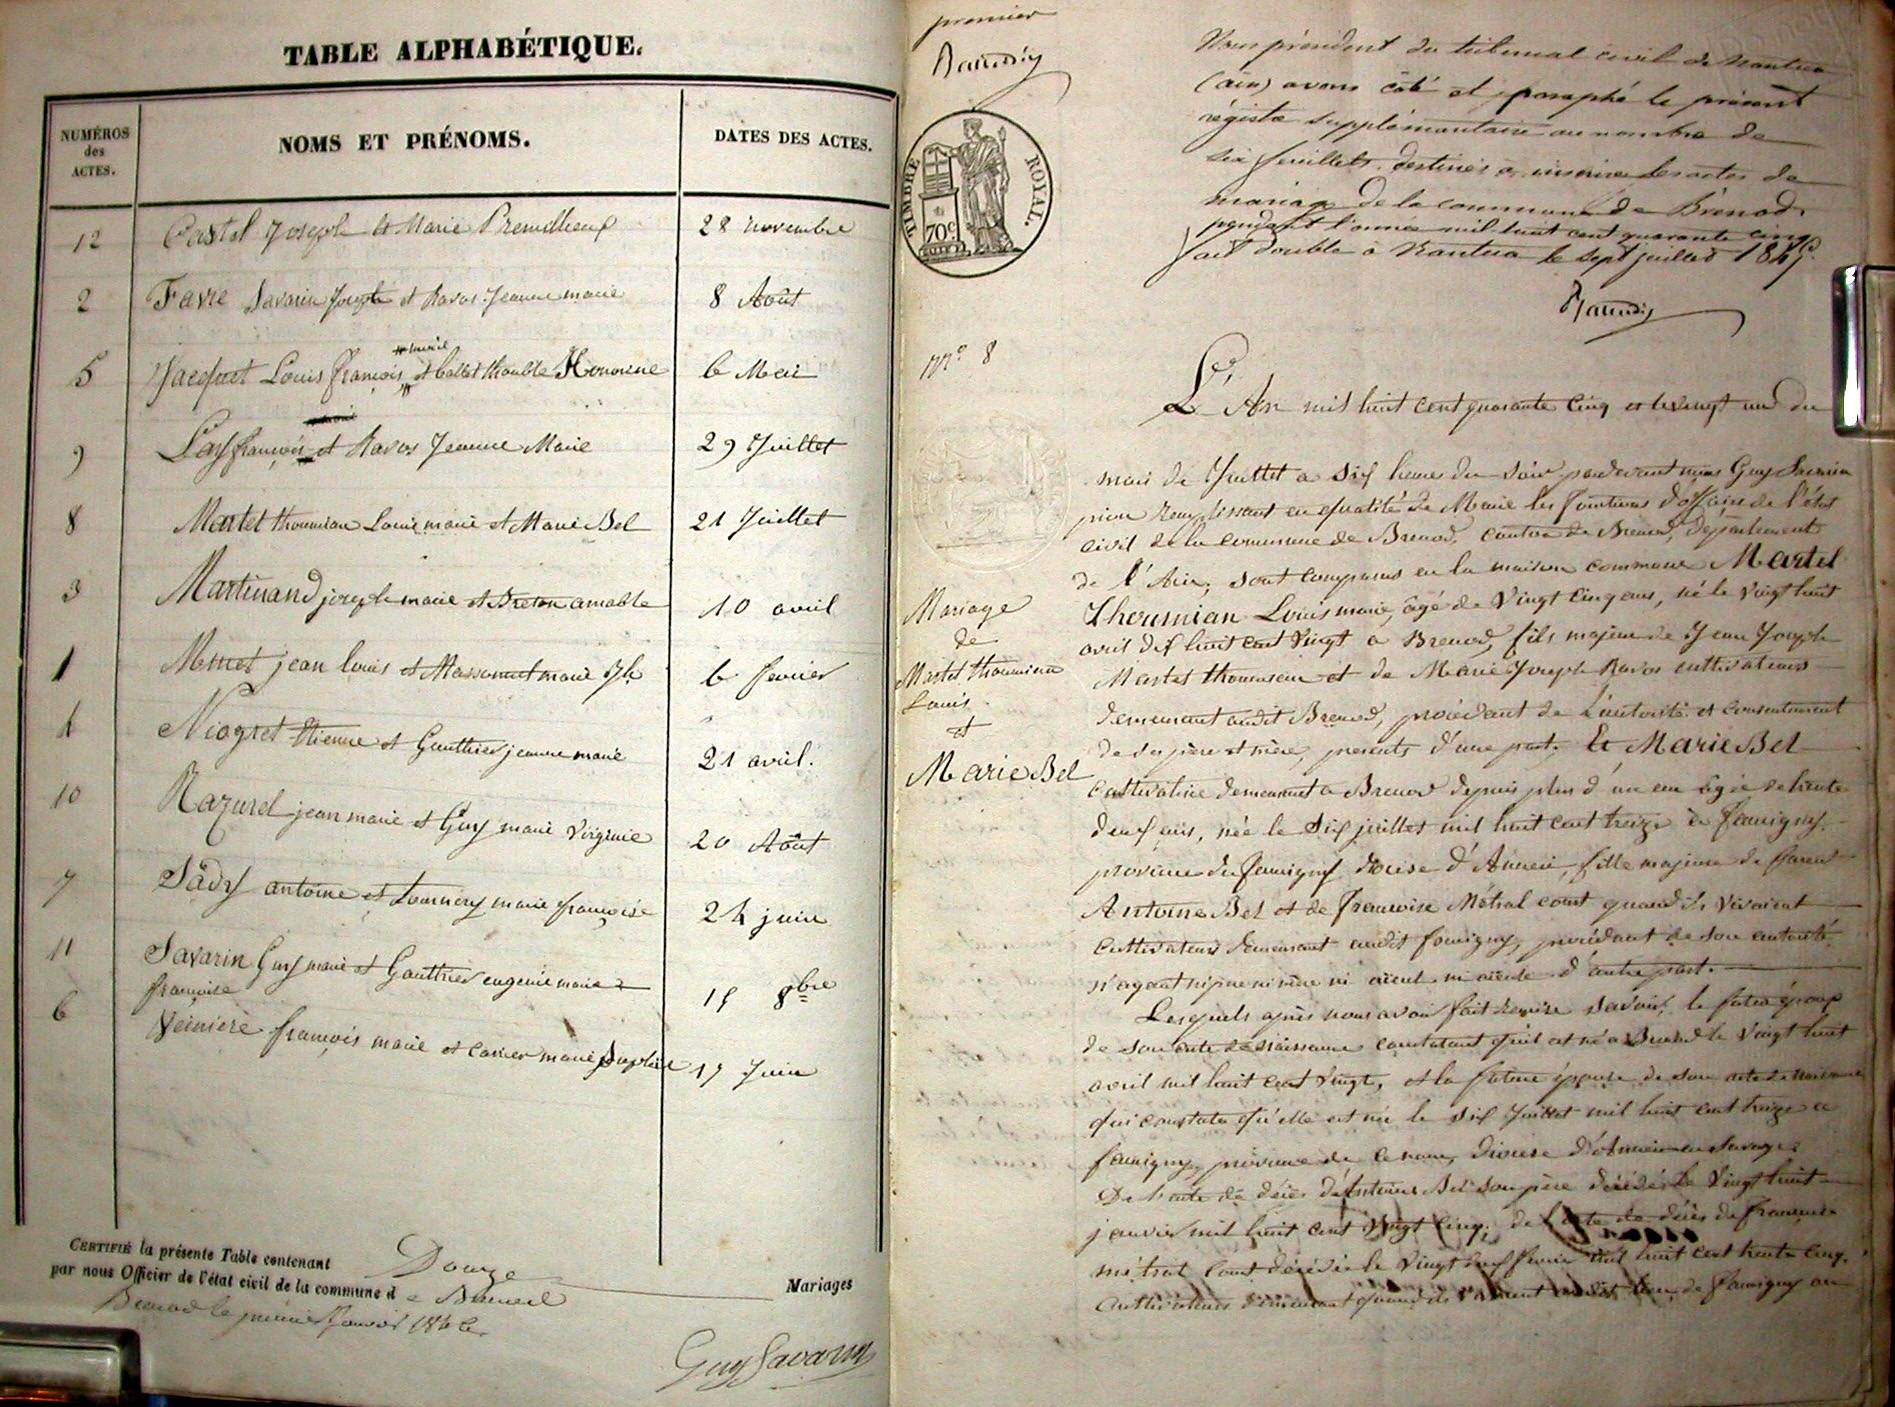 TABLE ALPHABÉTIQUE.
NUMÉROS des ACTES.
NOMS ET PRÉNOMS.
DATES DES ACTES.
12 Castel Joseph et Marie 28 novembre
2 Favre Savarin Joseph et Ravos Jeanne marie 8 Août
5 Jacquet Louis françois et Honorine 6 Mai
9 françois et Ravos Jeanne Marie 29 Juillet
8 Martel thoumian Louis marie et Marie Bel 21 Juillet
3 Martinand joseph marie et Breton amable 10 avril
1 jean louis et marie 6 fevrier
4 Niogret Etienne et Gauthier jeanne marie 21 avril.
10 jean marie et Guy marie Virginie 20 Août
7 antoine et marie françoise 24 juin
11 Savarin Guy marie et Gauthier eugenie marie
françoise 15 8bre
6 françois marie et marie 17 Juin
CERTIFIÉ la présente Table contenant Douze Mariages
par nous Officier de l'état civil de la commune de
Brenod le premier Janvier
Guy Savarin
premier
TIMBRE ROYAL.
70c
Nous président du tribunal civil de Nantua
(ain) avons coté et paraphé le présent
régistre supplémentaire au nombre de
six feuillets destinés à inscrire les actes de
mariage de la commune de Brénod
pendant l'année mil huit cent quarante cinq
fait double à Nantua le sept juillet 1845
No 8
L'An mil huit cent quarante cinq et le vingt un du
mois de Juillet a six heures du soir pardevant nous Guy Savarin
pion remplissant en qualité de Maire les fonctions d'officier de l'état
civil de la commune de Brenod, canton de Brenod, département
de l'Ain, sont comparus en la maison commune Martel
Thoumian Louis marie, âgé de Vingt cinq ans, né le Vingt huit
avril dix huit cent Vingt a Brenod, fils majeur de Jean Joseph
Martel thoumian et de Marie Joseph Ravos cultivateurs
demeurant audit Brenod, procédant de l'autorité et consentement
de ses père et mère, presents d'une part, Et Marie Bel
Cultivatrice demeurant a Brenod depuis plus d'un an âgée de trente
deux ans, née le Six juillet mil huit cent treize à faucigny
province du faucigny diocese d'Anneci, fille majeure de
Antoine Bel et de françoise Métral court quand ils vivaient
cultivateurs demeurant audit faucigny, procédant de son autorité
n'ayant ni père ni mère ni aieul ni aieule d'autre part.
Lesquels après nous avoir fait remise savoir, le futur époux
de son acte de naissance constatant qu'il est né a Brenod le Vingt huit
avril mil huit cent Vingt, et la future épouse de son acte de naissance
qui constate qu'elle est née le Six Juillet mil huit cent treize a
faucigny, province de ce nom, diocese d'Anneci en Savoye
De l'acte de décès d'Antoine Bel son père décédé le Vingt huit
janvier mil huit cent Vingt cinq, de l'acte de décès de françoise
métral court décédée le Vingt fevrier mil huit cent trente cinq
cultivateurs demeurant quand ils vivaient audit lieu de faucigny
Mariage
de
Martel thoumian
Louis
et
Marie Bel